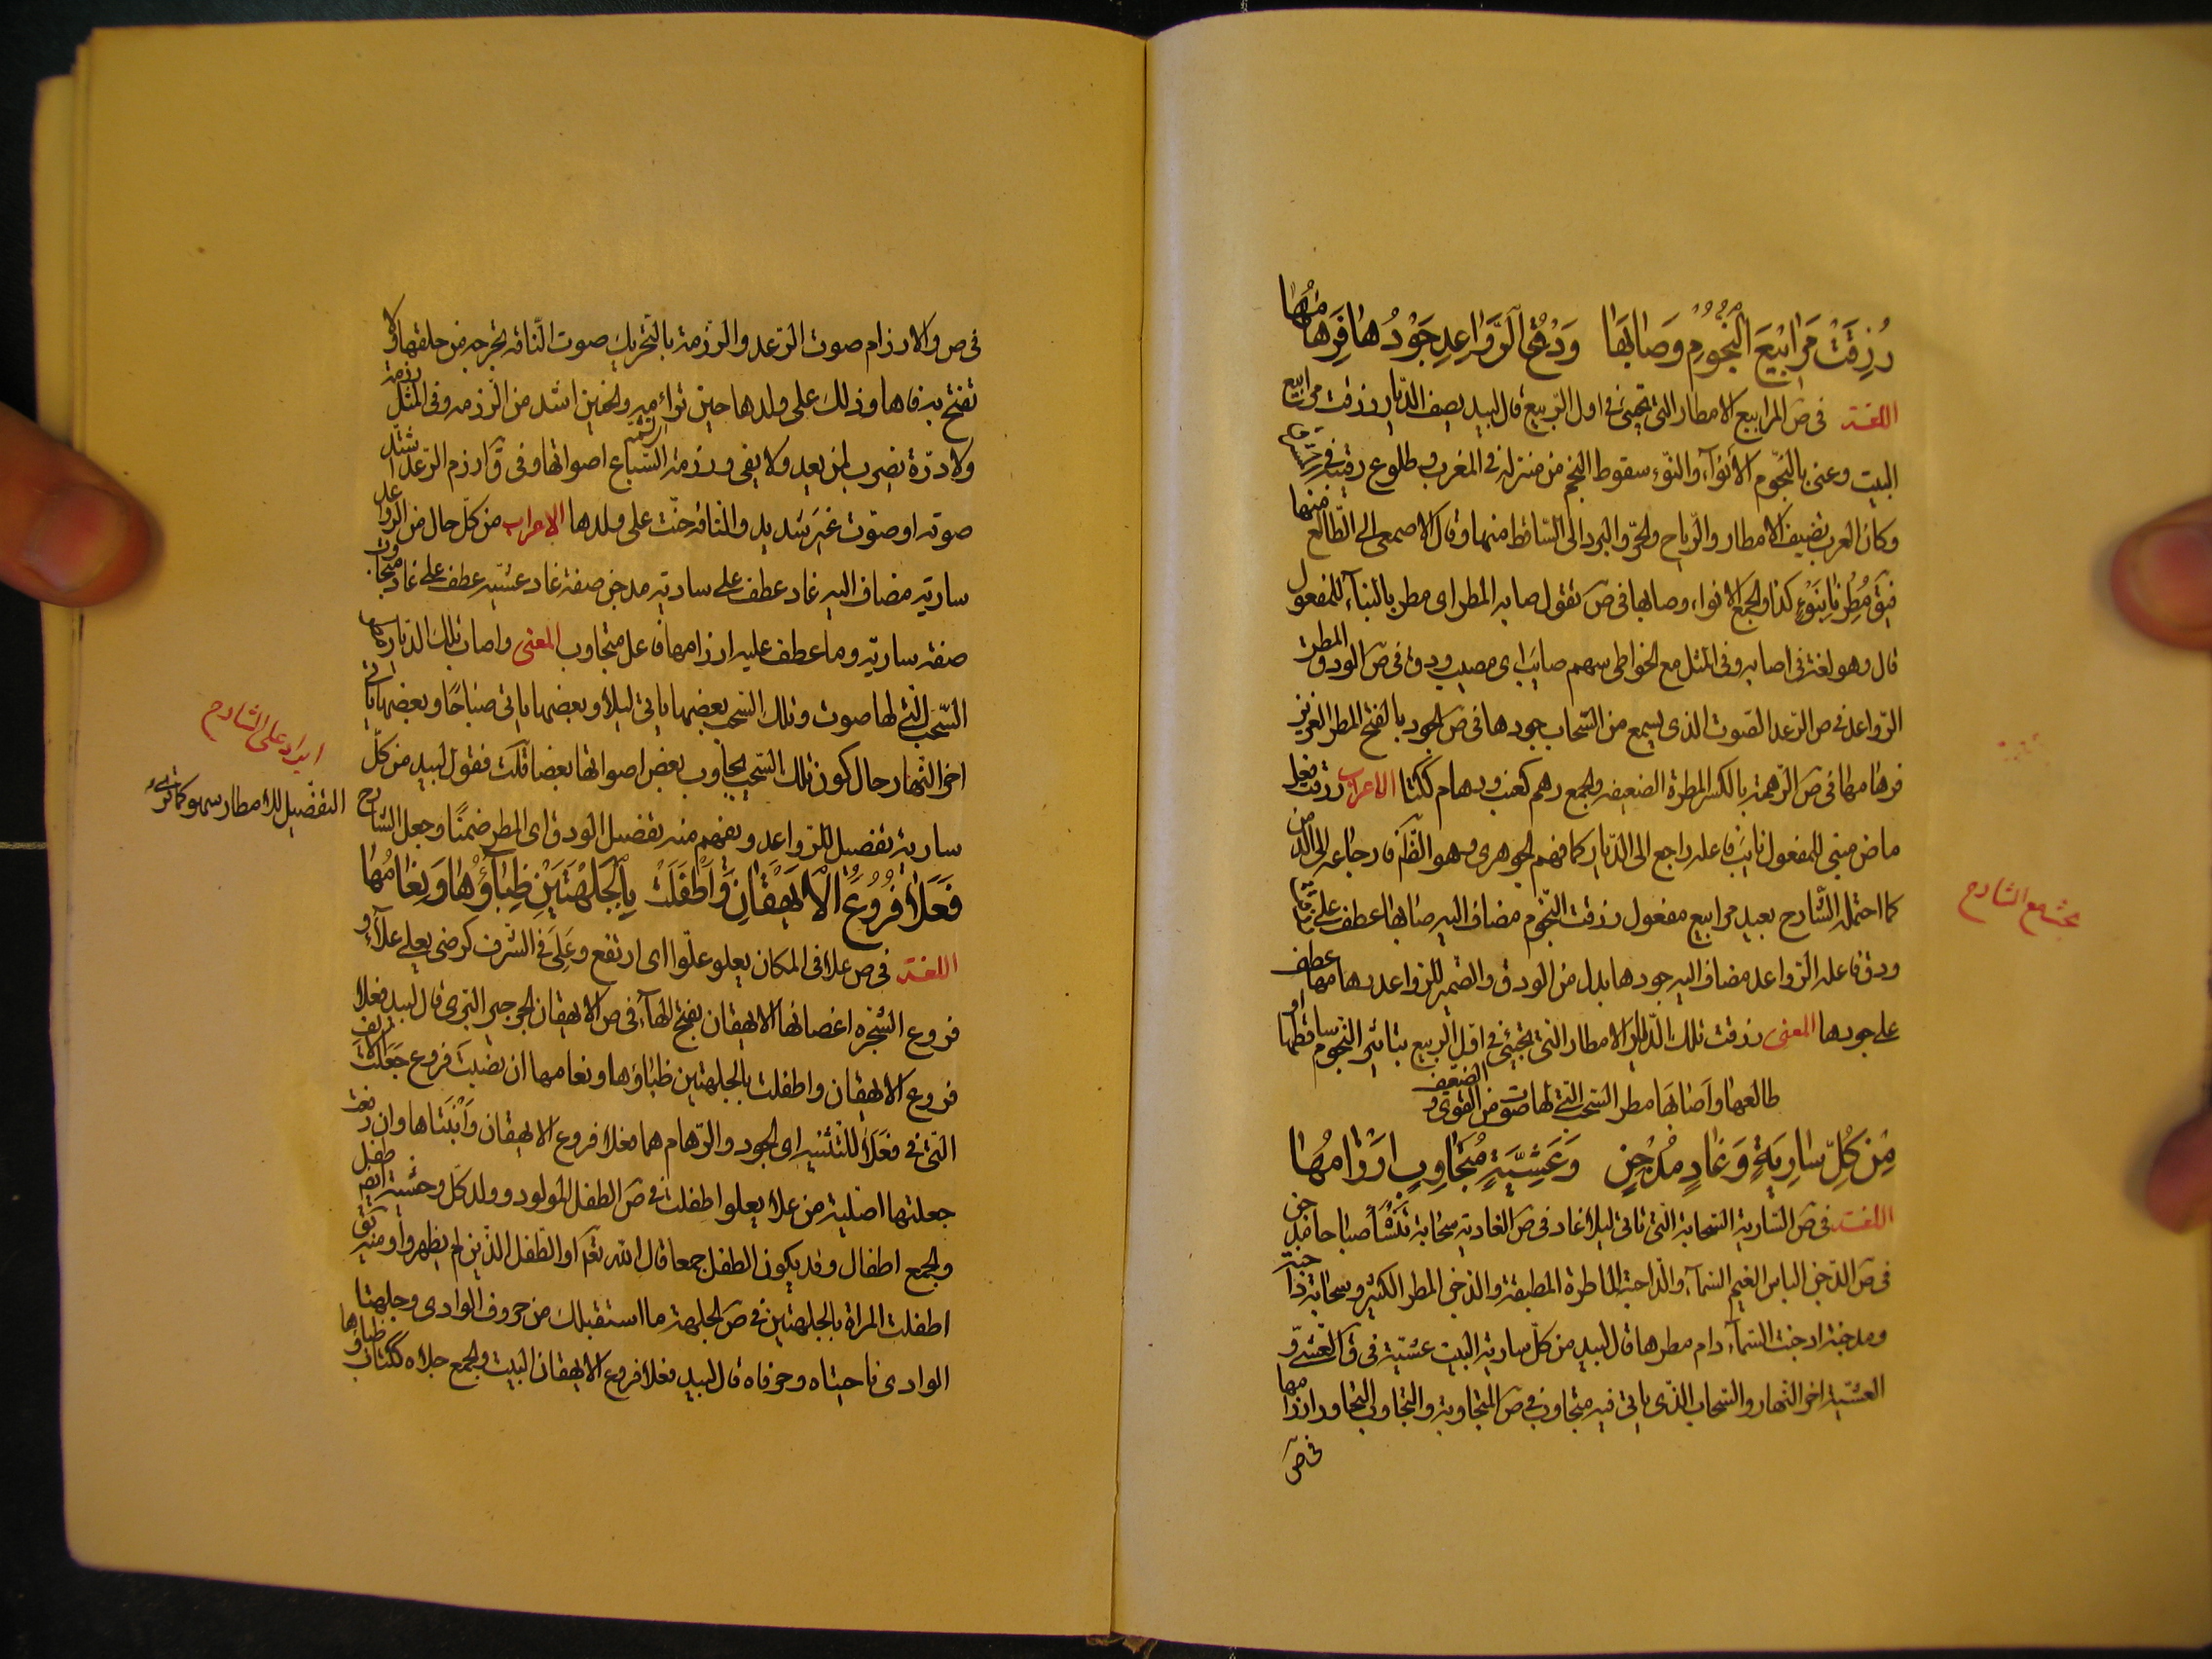 رُزِقَتْ مَرَابِيْعَ النُّجُومِ وَصَابَهَا وَدْقُ الرَّوَاعِدِ جَوْدُهَا فَرِهَامُهَا
اللغة في ص المرابيع الامطار التي تجيئ في اول الربيع قال لبيد يصف الديار رزقت مرابيع
البيت وعنى بالنجوم الانوآء والنوء سقوط النجم من منزله في المغرب وطلوع رقيبه
وكان العرب تضيف الامطار والرياح والحر والبرد الى الساقط منها وقال الاصمعي الى الطالع منها
فيق مُطِرنا بنَوْءِ كذا والجمع الانواء وصابها في ص تقول صابه المطر اى مطر بالبناء للمفعول
قال وهو لغة في اصابه وفي المثل مع الخواطى سهم صايب اى مصيب ودق في ص الودق المطر
الرواعد في ص الرعد الصوت الذى يسمع من السحاب جودها في ص الجود بالفتح المطر الغزيز
فرهامها في ص الرهمة بالكسر المطرة الضعيفة والجمع رهم كعنب ورهام ككتا الاعراب رزقت فعل
ماض مبنى للمفعول نايب فاعله راجع الى الديار كما فهم الجوهرى وهو الظاهر فارجاعه الى الدمن
كما احتمله الشارح بعيد مرابيع مفعول رزقت النجوم مضاف اليه صابها عطف على
ودق فاعله الرواعد مضاف اليه جودها بدل من الودق والضمير للرواعد رهامها عطف
على جودها المعنى رزقت تلك الديار الامطار التي تجيئ في اول الربيع بتاثير النجوم ساقطها او
طالعها واصابها مطر السحب التي لها صوت من القوى و الضعيف
مِنْ كُلِّ سَارِيَةٍ وَغَادٍ مُدْجِنٍ وَعَشِيَّةٍ مُتَجَاوِبٍ ارْزَامُهَا
اللغة في ص السارية السحابة التي تاتي ليلا غاد في ص الغادية سحابة تنشأ صباحا مدجن
في ص الدجن الباس الغيم السماء والداجنة الماطرة المطبقة والدجن المطر الكثير وسحابة داجنة
ومدجنة ادجنت السماء دام مطرها قال لبيد من كل سارية البيت عشية في ق العشى و
العشية اخر النهار والسحاب الذى ياتى فيه متجاوب في ص المتجاوبة والتجاوب التحاور ارزامها
في ص
بحث مع الشارح
في ص والارزام صوت الرعد والرزمة بالتحريك صوت الناقة تخرجه من حلقها لا
تفتح به فاها وذلك على ولدها حين تراءمه والحنين اشد من الرزمة وفي المثل رزمة
ولا درّة يضرب لمن يعد ولا يفى ورزمة السباع اصواتها وفي ق ارزم الرعد اشتد
صوته او صوت غير شديد والناقة حنت على ولدها الاعراب من كل حال من الرواعد
سارية مضاف اليه غاد عطف على سارية مدجن صفة غاد عشية عطف على غاد متجاوب
صفة سارية وما عطف عليه ارزامها فاعل متجاوب المعنى واصاب تلك الديار
السحب التي لها صوت وتلك السحب بعضها ياتي ليلا وبعضها ياتي صباحًا وبعضها ياتي
اخر النهار حال كون تلك السحب يجاوب بعض اصواتها بعضا قلت فقول لبيد من كل
سارية تفصيل للرواعد ويفهم منه تفصيل الودق اى المطر ضمنًا وجعل الشارح
ايراد على الشارح
التفصيل للامطار سهو كما ترى
فَعَلَا فُرُوعُ الْاَيْهَقَانِ وَاَطْفَلَتْ بِالْجَلْهَتَيْنِ ظِبَاؤُهَا وَنِعَامُهَا
اللغة في ص علا في المكان يعلو علوا اى ارتفع وعَلِيَ في الشرف كرضى يعلى علاء و
فروع الشجرة اغصانها الايهقان بفتح الهاء في ص الايهقان الجرجير البرى قال لبيد فعلا
فروع الايهقان واطفلت بالجلهتين ظباؤها ونعامها ان نصبت فروع جعلت الالف
التي في فَعَلَا للتثنية اى الجود والرهام هما فعلا فروع الايهقان وَاَنْبَتَاها وان رفعت
جعلتها اصلية من علا يعلو اطفلت في ص الطفل المولود وولد كل وحشية ايضا طفل
والجمع اطفال وقد يكون الطفل جمعا قال الله تعم او الطفل الذين لم يظهروا ومنه يق
اطفلت المراة بالجلهتين في ص الجلهة ما استقبلك من حروف الوادى وجلهتا
الوادى ناحيتاه وحرفاه قال لبيد فعلا فروع الايهقان البيت والجمع جلاه ككتاب ظباؤها و